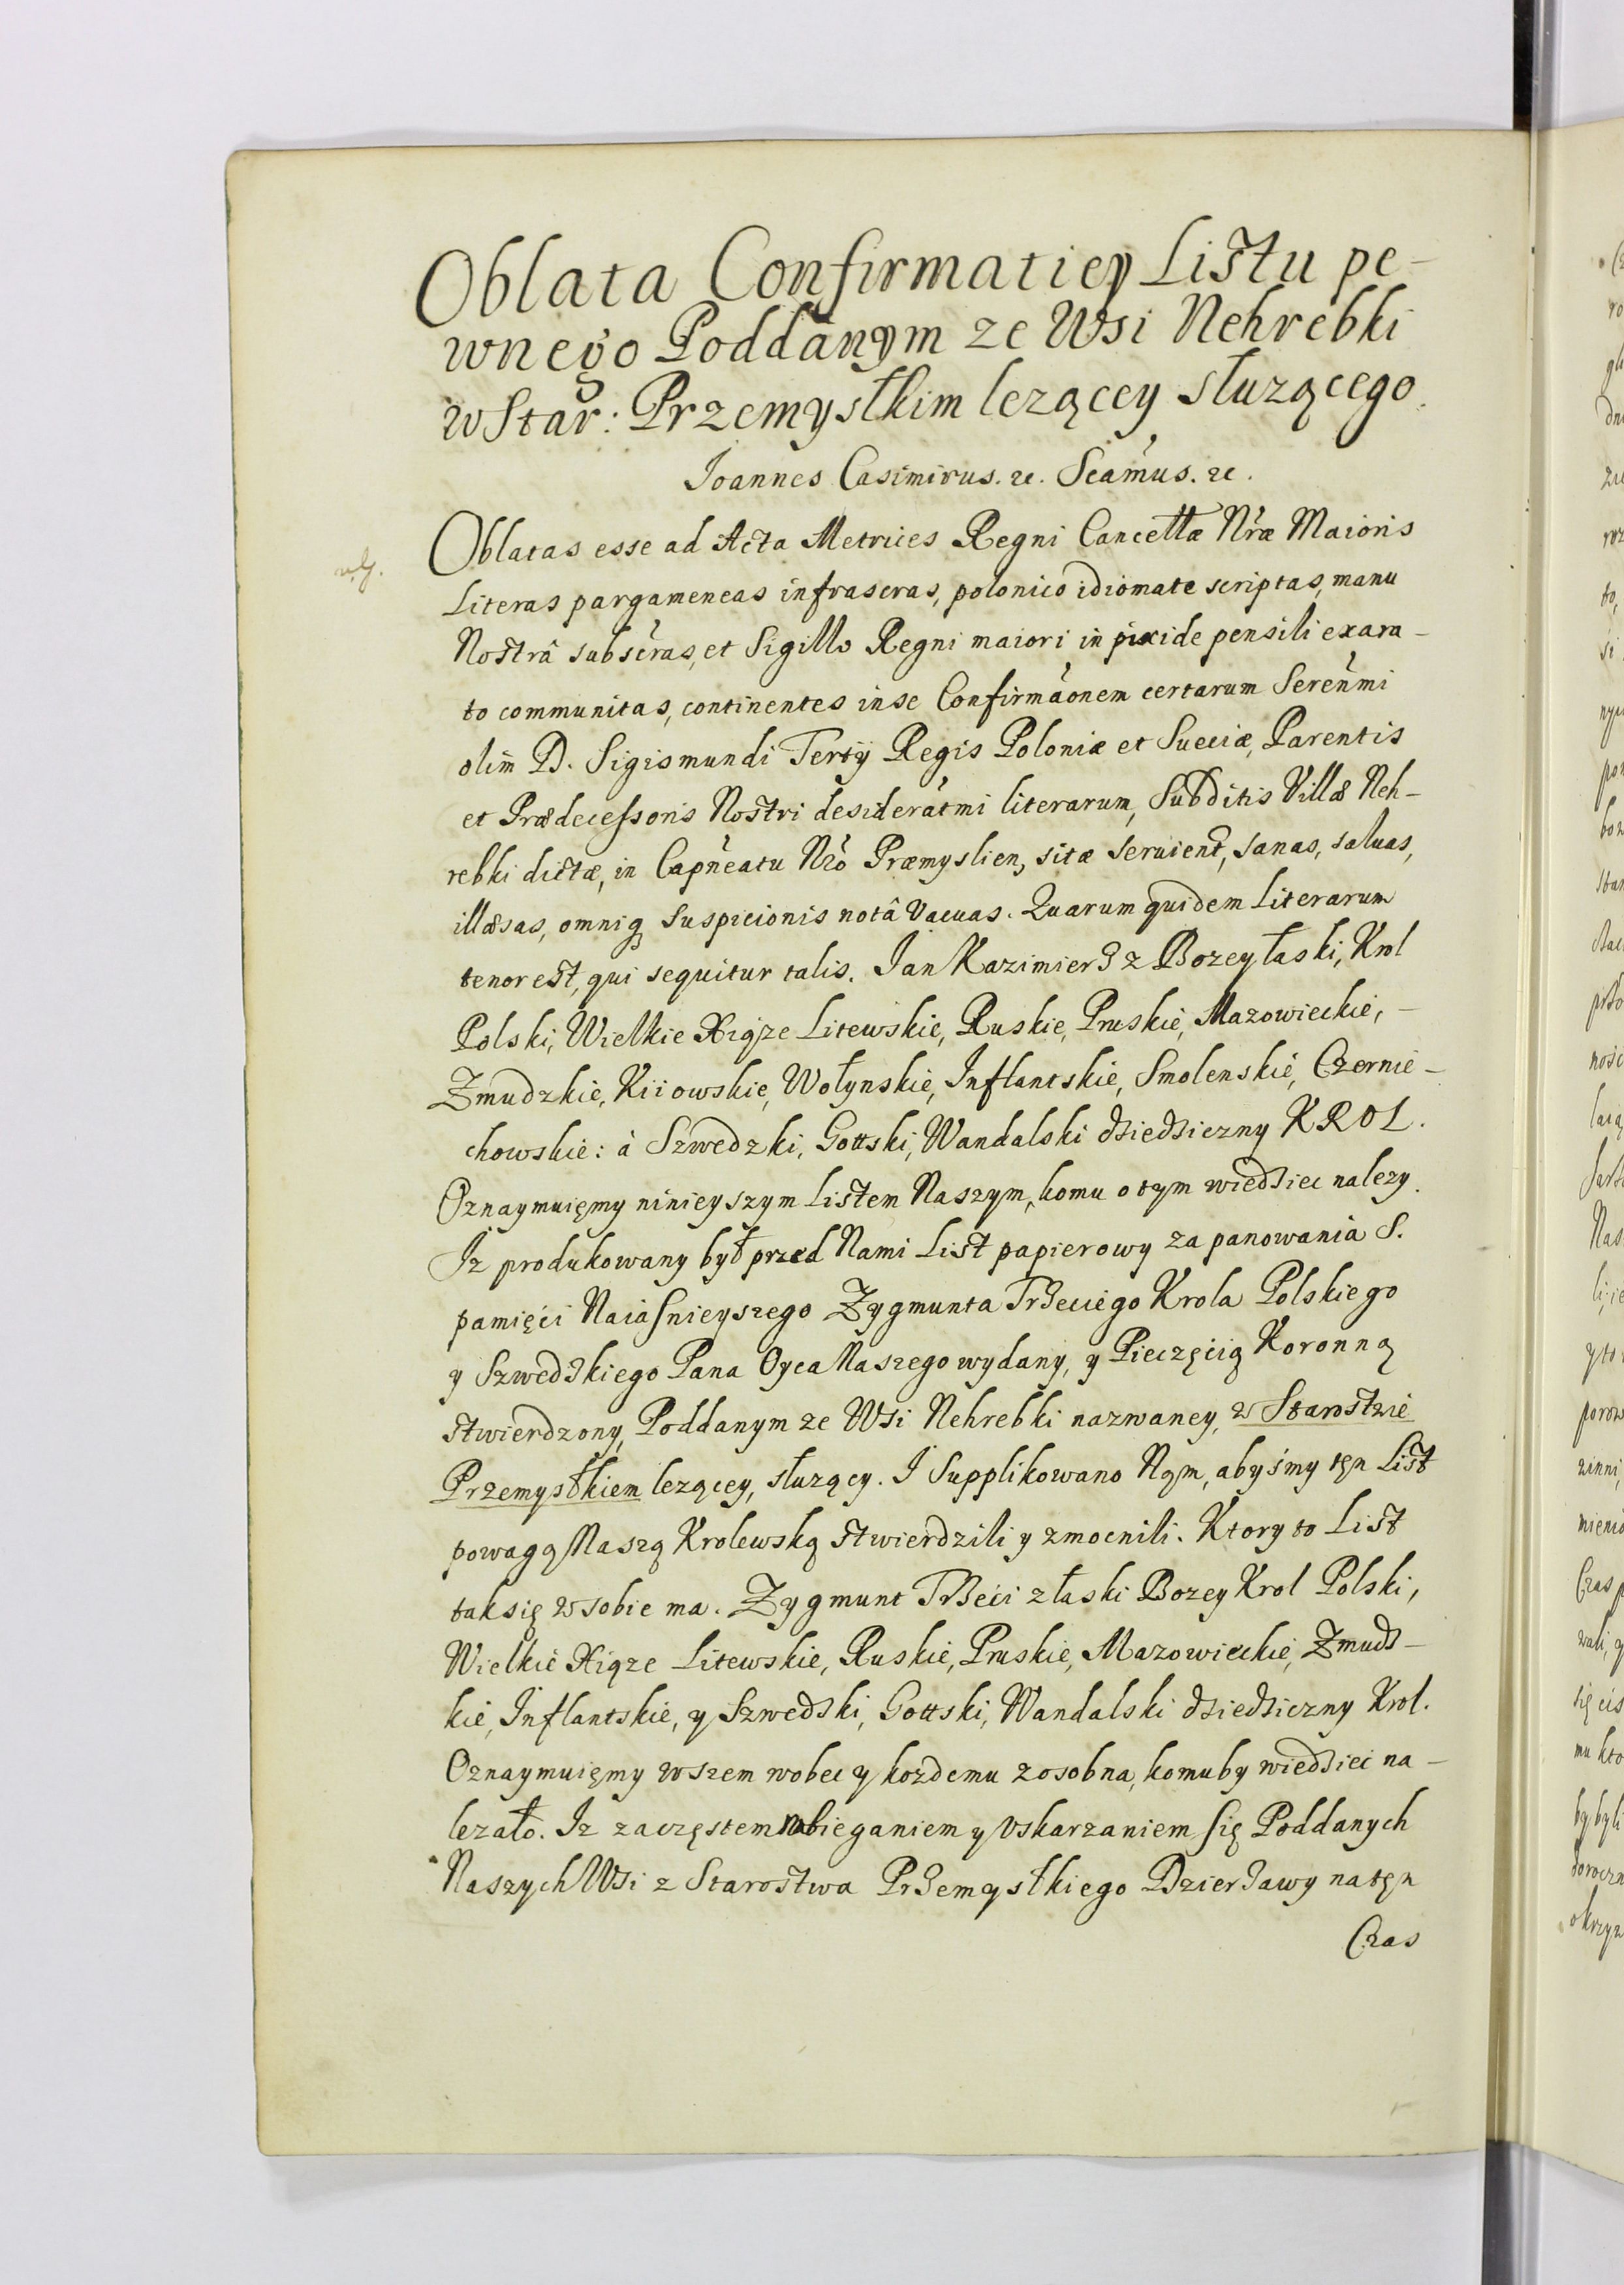 Oblata Confirmatiey Listu pe-
wnego Poddanym ze Wsi Nehrebki
w Star: Przemyslkim lezącey słuzącego.
Joannes Casimirus. &c. Sċamus. &c.
Oblatas esse ad Acta Metrices Regni Cancellæ Nræ Maioris
Literas pargameneas infrascras, polonico idiomate scriptas, manu
Nostrâ subscras, et Sigillo Regni maiori in pixide pensili exara-
to communitas, continentes in se Confirmaonem certarum Serenmi
olim D. Sigismundi Tertÿ Regis Poloniæ et Sueciæ, Parentis
et Prædecessoris Nostri desideratmi literarum, Subditis Villæ Neh-
rebki dictæ, in Capneatu Nro Præmyslien, sitæ seruient, sanas, saluas,
illæsas, omniq suspicionis notâ vacuas. Quarum quidem Literarum
tenor est, qui sequitur talis. Jan Kazimierz z Bozey łaski, Krol
Polski, Wielkie Xiąze Litewskie, Ruskie, Pruskie, Mazowieckie, -
Zmudzkie, Kiiowskie, Wołynskie, Inflantskie, Smolenskie, Czernie-
chowskie: à Szwedzki, Gottski, Wandalski dziedziczny KROL.
Oznaymuięmy ninieyszym Listem Naszym, komu o tym wiedziec nalezy.
Iz produkowany był przed Nami List papierowy za panowania S.
pamięci Naiasnieyszego Zygmunta Trzeciego Krola Polskiego
y Szwedzkiego Pana Oyca Naszego wydany, y Pieczęcią Koronną
stwierdzony, Poddanym ze Wsi Nehrebki nazwaney, w Starostwie
Przemysłkiem lezącey, słuzący. I Supplikowano Nąm, abyśmy tęn List
powagą Naszą Krolewską stwierdzili y zmocnili. Ktory to List
tak się w sobie ma. Zygmunt Trzeci z łaski Bozey Krol Polski,
Wielkie Xiąze Litewskie, Ruskie, Pruskie, Mazowieckie, Zmudz-
kie, Inflantskie, y Szwedzki, Gottski, Wandalski dziedziczny Krol.
Oznaymuięmy wszem wobec y kozdemu zosobna, komuby wiedziec na-
lezało. Iz zaczęstem nabieganiem y Vskarzaniem się Poddanych
Naszych Wsi z Starostwa Przemysłkiego Dzierzawy natęn
Czas